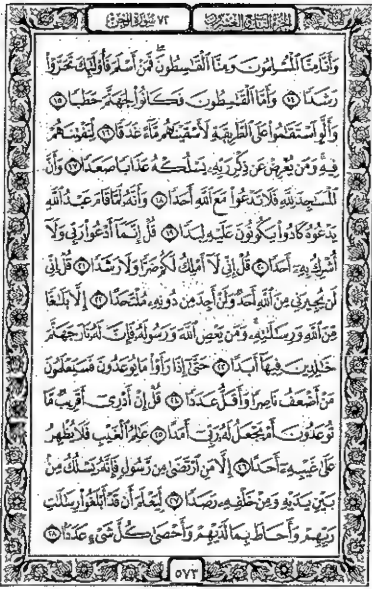 الجزء التاسع والعشرون ٧٢ سورة الجن
وَأَنَّا مِنَّا ٱلْمُسْلِمُونَ وَمِنَّا ٱلْقَٰسِطُونَۖ فَمَنْ أَسْلَمَ فَأُو۟لَٰٓئِكَ تَحَرَّوْا۟
رَشَدًا ١٤ وَأَمَّا ٱلْقَٰسِطُونَ فَكَانُوا۟ لِجَهَنَّمَ حَطَبًا ١٥
وَأَلَّوِ ٱسْتَقَٰمُوا۟ عَلَى ٱلطَّرِيقَةِ لَأَسْقَيْنَٰهُم مَّآءً غَدَقًا ١٦ لِّنَفْتِنَهُمْ
فِيهِۚ وَمَن يُعْرِضْ عَن ذِكْرِ رَبِّهِۦ يَسْلُكْهُ عَذَابًا صَعَدًا ١٧ وَأَنَّ
ٱلْمَسَٰجِدَ لِلَّهِ فَلَا تَدْعُوا۟ مَعَ ٱللَّهِ أَحَدًا ١٨ وَأَنَّهُۥ لَمَّا قَامَ عَبْدُ ٱللَّهِ
يَدْعُوهُ كَادُوا۟ يَكُونُونَ عَلَيْهِ لِبَدًا ١٩ قُلْ إِنَّمَآ أَدْعُوا۟ رَبِّى وَلَآ
أُشْرِكُ بِهِۦٓ أَحَدًا ٢٠ قُلْ إِنِّى لَآ أَمْلِكُ لَكُمْ ضَرًّا وَلَا رَشَدًا ٢١ قُلْ إِنِّى
لَن يُجِيرَنِى مِنَ ٱللَّهِ أَحَدٌ وَلَنْ أَجِدَ مِن دُونِهِۦ مُلْتَحَدًا ٢٢ إِلَّا بَلَٰغًا
مِّنَ ٱللَّهِ وَرِسَٰلَٰتِهِۦۚ وَمَن يَعْصِ ٱللَّهَ وَرَسُولَهُۥ فَإِنَّ لَهُۥ نَارَ جَهَنَّمَ
خَٰلِدِينَ فِيهَآ أَبَدًا ٢٣ حَتَّىٰٓ إِذَا رَأَوْا۟ مَا يُوعَدُونَ فَسَيَعْلَمُونَ
مَنْ أَضْعَفُ نَاصِرًا وَأَقَلُّ عَدَدًا ٢٤ قُلْ إِنْ أَدْرِىٓ أَقَرِيبٌ مَّا
تُوعَدُونَ أَمْ يَجْعَلُ لَهُۥ رَبِّىٓ أَمَدًا ٢٥ عَٰلِمُ ٱلْغَيْبِ فَلَا يُظْهِرُ
عَلَىٰ غَيْبِهِۦٓ أَحَدًا ٢٦ إِلَّا مَنِ ٱرْتَضَىٰ مِن رَّسُولٍ فَإِنَّهُۥ يَسْلُكُ مِنۢ
بَيْنِ يَدَيْهِ وَمِنْ خَلْفِهِۦ رَصَدًا ٢٧ لِّيَعْلَمَ أَن قَدْ أَبْلَغُوا۟ رِسَٰلَٰتِ
رَبِّهِمْ وَأَحَاطَ بِمَا لَدَيْهِمْ وَأَحْصَىٰ كُلَّ شَىْءٍ عَدَدًۢا ٢٨
٥٧٣